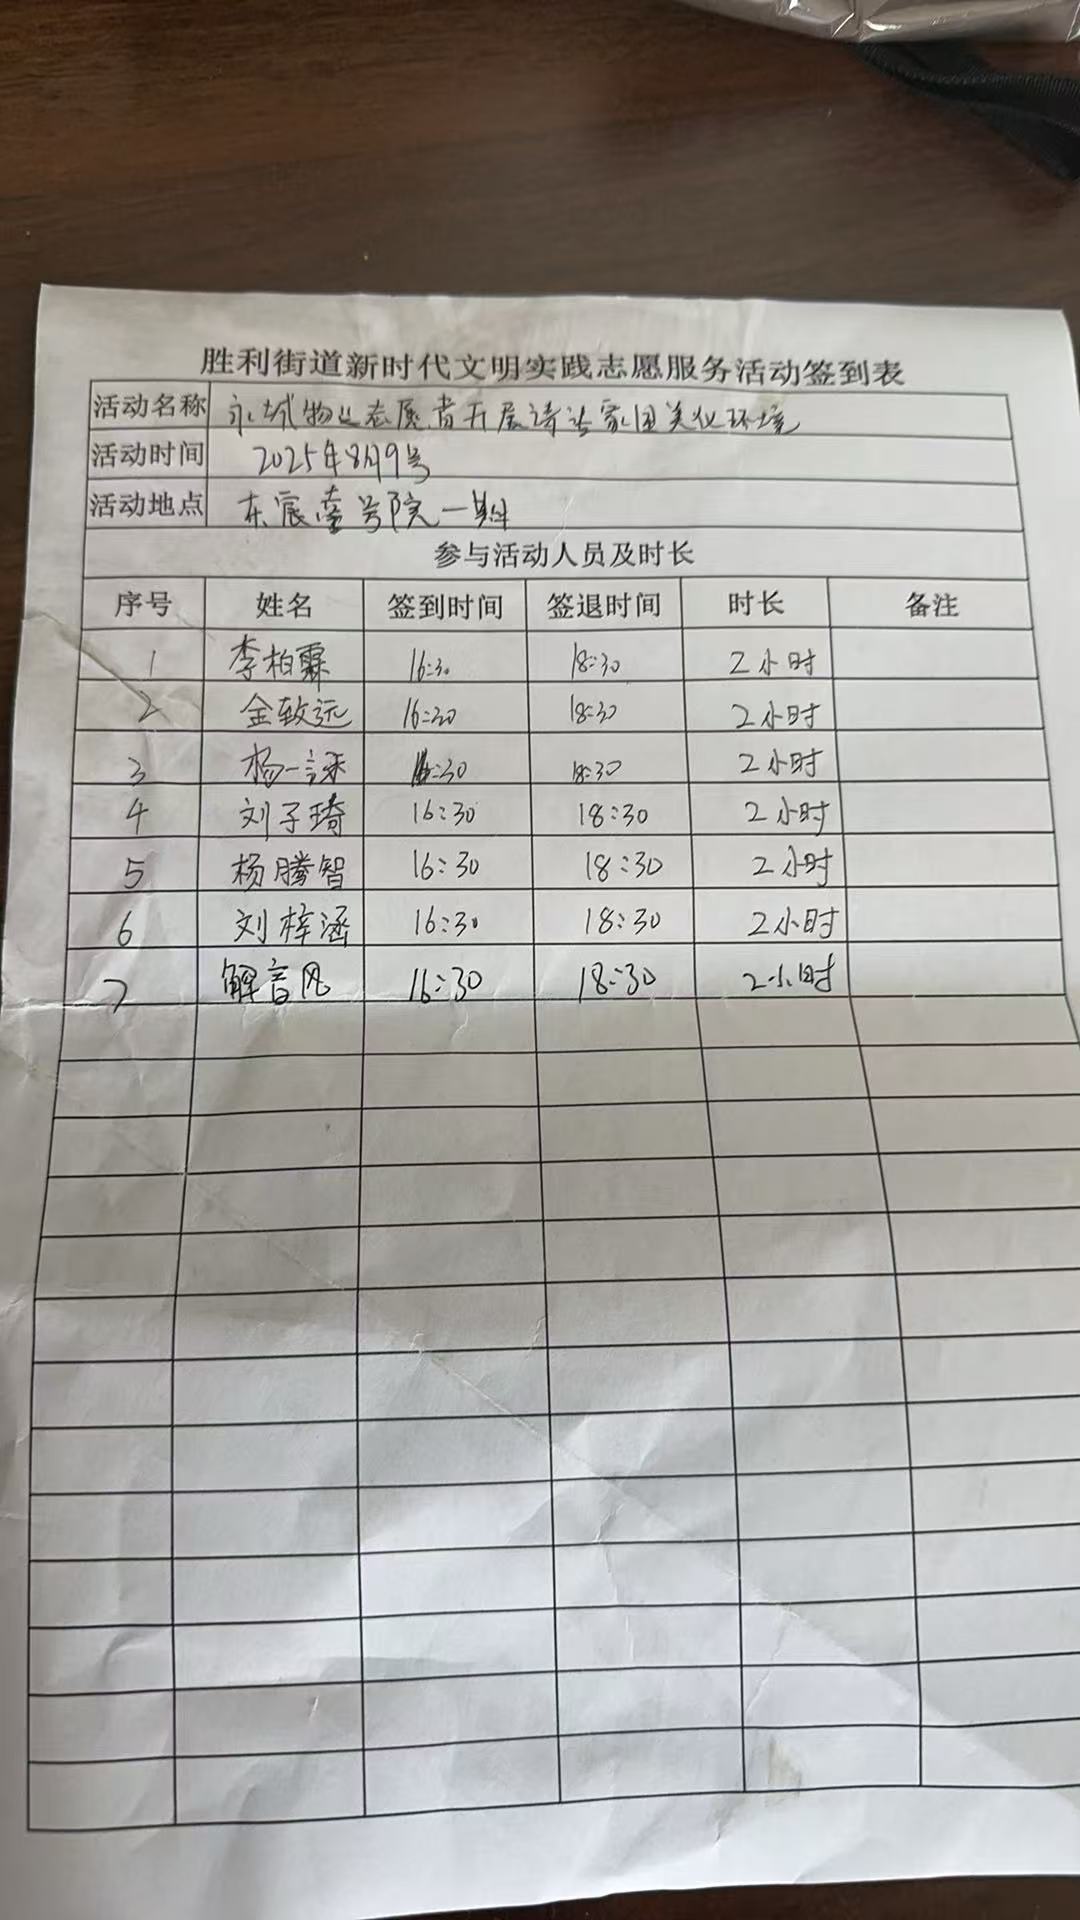 胜利街道新时代文明实践志愿服务活动签到表
活动名称 永城物业志愿者开展清洁家园美化环境
活动时间 2025年8月9号
活动地点 东宸壹号院一期
参与活动人员及时长
序号 姓名 签到时间 签退时间 时长 备注
1 李柏霖 16:30 18:30 2小时
2 金致远 16:30 18:30 2小时
3 杨一 16:30 18:30 2小时
4 刘子琦 16:30 18:30 2小时
5 杨腾智 16:30 18:30 2小时
6 刘梓涵 16:30 18:30 2小时
7 解音风 16:30 18:30 2小时